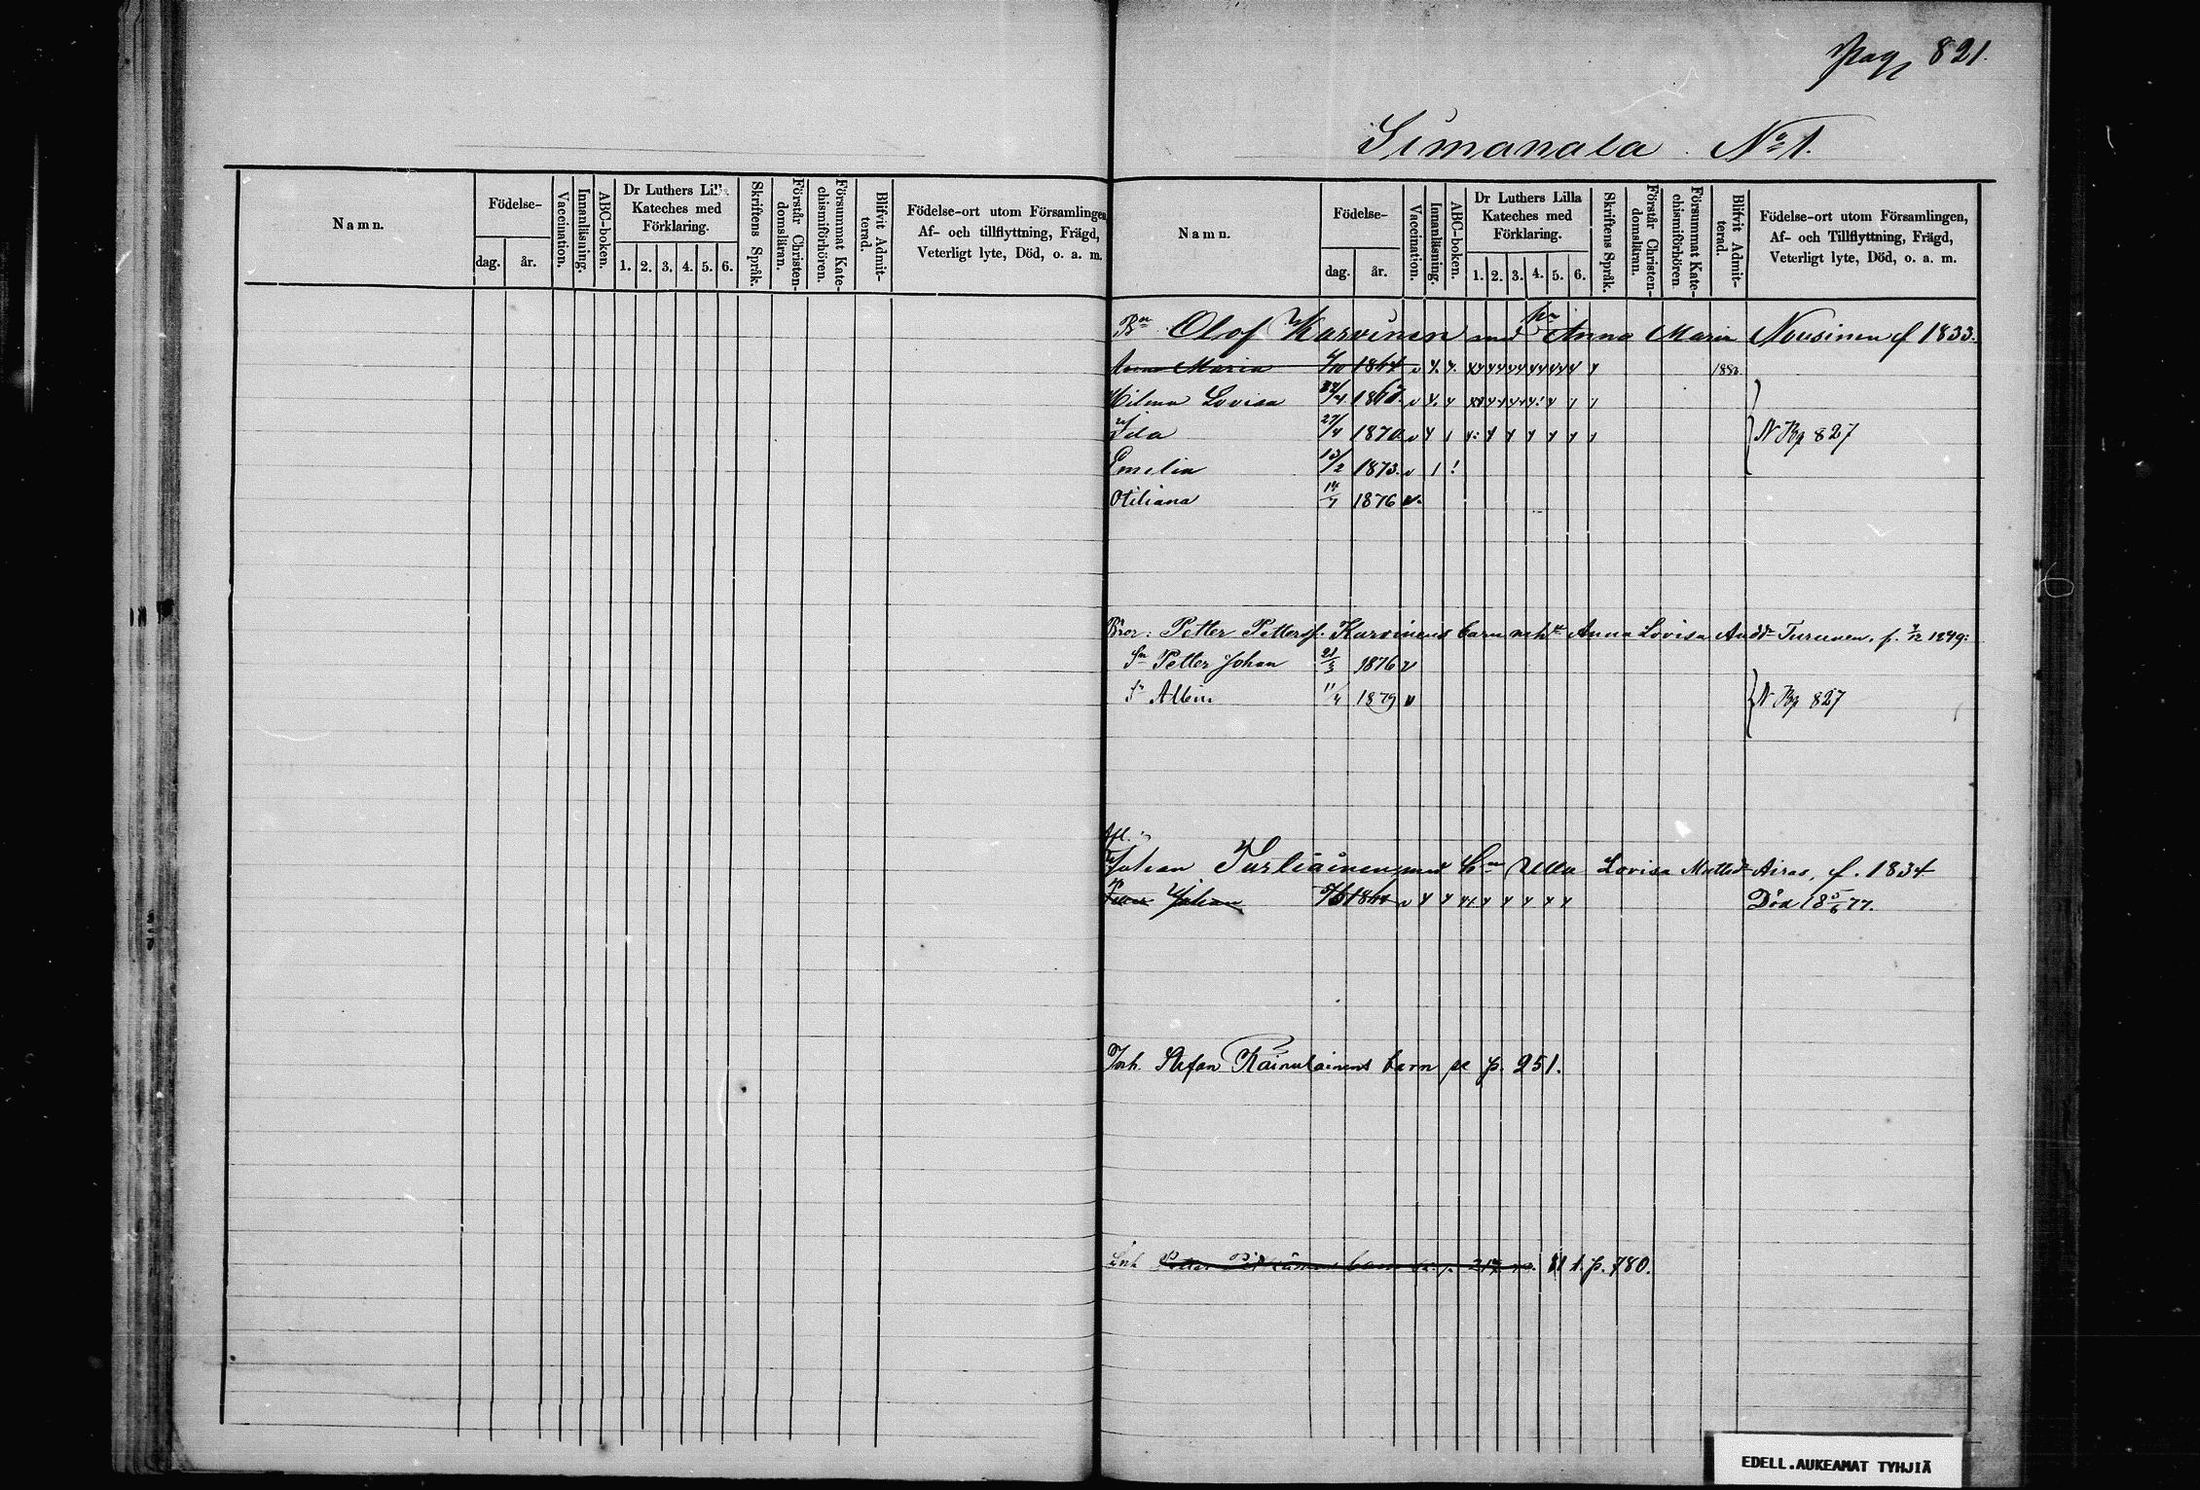 Pag. 821.
Simanala. No 1.
Namn.
Födelse-
dag.
år.
Vaccination.
Innanläsning.
ABC-boken.
Dr Luthers Lilla
Kateches med
Förklaring.
1. 2. 3. 4. 5. 6.
Skriftens Språk.
Förstår Christen-
domsläran.
Försummat Kate-
chismiförhören.
Blifvit Admit-
terad.
Födelse-ort utom Församlingen,
Af- och tillflyttning, Frägd,
Veterligt lyte, Död, o. a. m.
Namn.
Födelse-
dag.
år.
Vaccination.
Innanläsning.
ABC-boken.
Dr Luthers Lilla
Kateches med
Förklaring.
1. 2. 3. 4. 5. 6.
Skriftens Språk.
Förstår Christen-
domsläran.
Försummat Kate-
chismiförhören
Blifvit Admit-
terad.
Födelse-ort utom Församlingen,
Af- och Tillflyttning, Frägd,
Veterligt lyte, Död, o. a. m.
Bn Olof Karvinen med hu Anna Maria Nousinen f 1833.
Maria 1864 v
Hilma Lovisa v
Ida 27/4 1870 v N Bg 827
Emelia 13/2 1873. v
Otiliana 14/7 1876 v.
Bror: Petter Petterss. Karvinens barn m h: Anna Lovisa Turunen, f. 1/12 1849:
Sn Petter Johan 21/3 1876 v
Sn Albin 11/4 1879 v N Bg 827
Afl.
Johan Turliainen med Ulla Lovisa Mattsdr Airas, f. 1834
Johan v Död 18 5/6 77.
Inh. Stefan Kainulainens barn se p. 251.
Inh Petter barn p. 780.
EDELL.AUKEAMAT TYHJIÄ